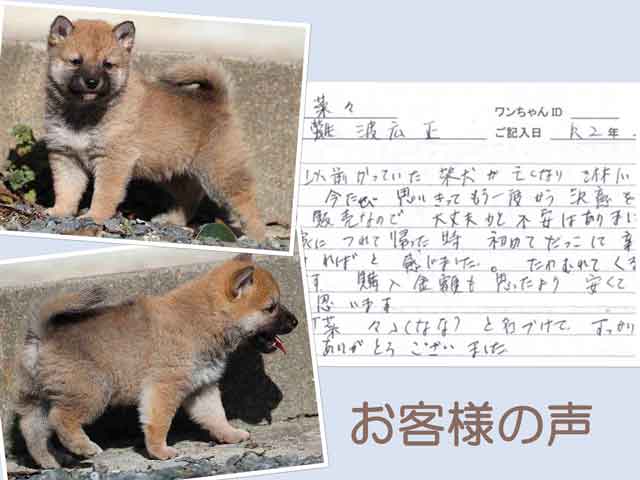 菜々 ワンちゃんID
難波広正 ご記入日 R2年
以前かっていた柴犬が亡くなり
今だが 思いきってもう一度かう決意を
販売なので 大丈夫かと不安はありまし
家につれて帰った時 初めてだっこして
ればと 感じました。
購入金額も思ったより 安くて
思います
「菜々」(なな)と名づけて、すっかり
ありがとうございました
お客様の声